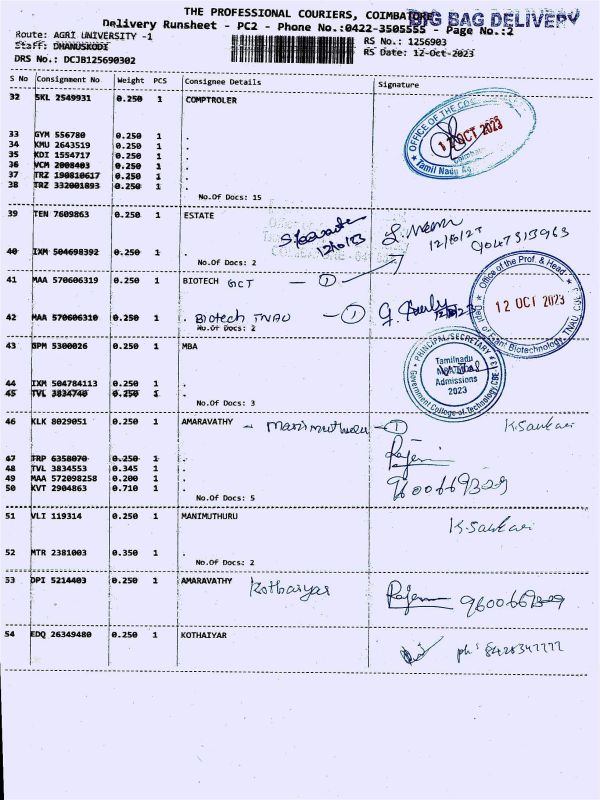 THE PROFESSIONAL COURIERS, COIMBATORE
BIG BAG DELIVERY
Delivery Runsheet - PC2 - Phone No.:0422-3505555 - Page No.:2
Route: AGRI UNIVERSITY -1
RS No.: 1256903
Staff: DHANUSKODI
RS Date: 12-Oct-2023
DRS No.: DCJB125690302
S No Consignment No Weight PCS Consignee Details Signature
32 SKL 2549931 0.250 1 COMPTROLER
OFFICE OF THE
12 OCT 2023
Coimbatore
Tamil Nadu
33 GYM 556780 0.250 1 .
34 KMU 2643519 0.250 1 .
35 KDI 1554717 0.250 1 .
36 VCM 2008403 0.250 1 .
37 TRZ 190810617 0.250 1 .
38 TRZ 332001893 0.250 1 .
No.Of Docs: 15
39 TEN 7609863 0.250 1 ESTATE
12/10/23
40 IXM 504698392 0.250 1 .
No.Of Docs: 2
41 MAA 570606319 0.250 1 BIOTECH GCT - 1
Office of the Prof. & Head
12 OCT 2023
Dept. of Plant Biotechnology, TNAU, CBE-3
42 MAA 570606310 0.250 1 . Biotech TNAU - 1
No.Of Docs: 2
43 BPM 5300026 0.250 1 MBA
PRINCIPAL/SECRETARY
Tamilnadu
Admissions
2023
Government College of Technology, CBE-13
44 IXM 504784113 0.250 1 .
45 TVL 3834740 0.250 1 .
No.Of Docs: 3
46 KLK 8029051 0.250 1 AMARAVATHY - Manimutharu - 1 K.Sankari
47 TRP 6358070 0.250 1 .
48 TVL 3834553 0.345 1 .
49 MAA 572098258 0.200 1 .
50 KVT 2904863 0.710 1 .
Rajeni
9600669309
No.Of Docs: 5
51 VLI 119314 0.250 1 MANIMUTHURU
K.Sankari
52 MTR 2381003 0.350 1 .
No.Of Docs: 2
53 DPI 5214403 0.250 1 AMARAVATHY Kothaiyar Rajeni 9600669309
54 EDQ 26349480 0.250 1 KOTHAIYAR